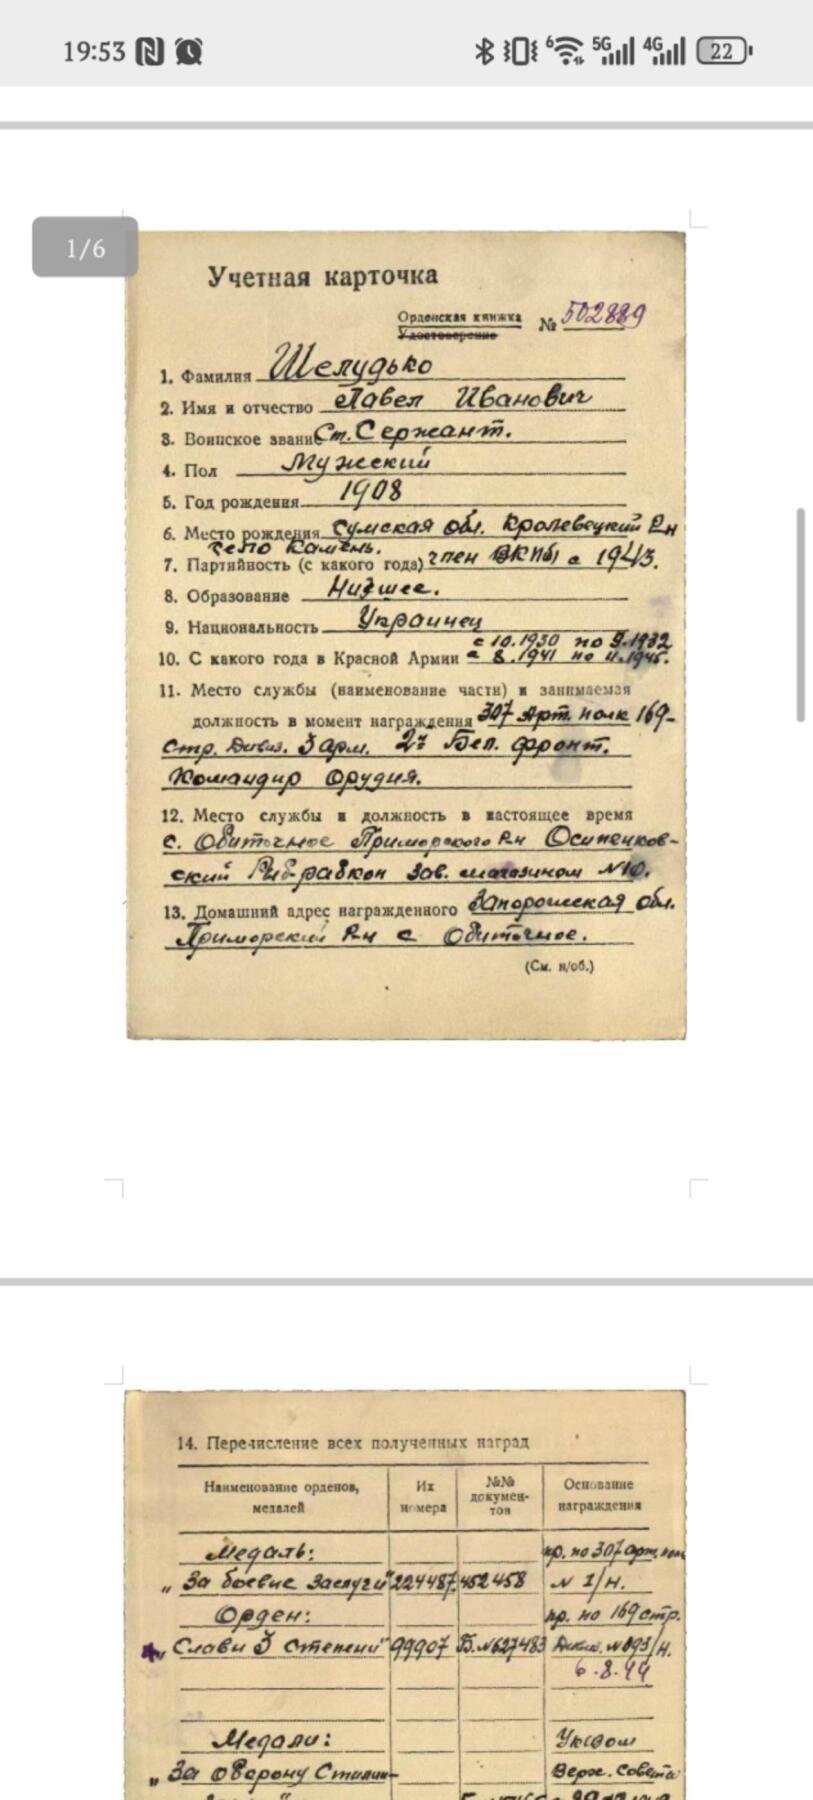 19:53
6 5G 4G 22
1/6
Учетная карточка
Орденская книжка
Удостоверение
№ 502889
1. Фамилия Шелудько
2. Имя и отчество Павел Иванович
3. Воинское звание Ст. Сержант.
4. Пол Мужский
5. Год рождения 1908
6. Место рождения Сумская обл. Кролевецкий Р-н
село Камень.
7. Партийность (с какого года) член ВКПб) с 1943.
8. Образование Низшее.
9. Национальность Украинец
с 10.1930 по 9.1932
10. С какого года в Красной Армии с 8.1941 по 11.1945.
11. Место службы (наименование части) и занимаемая
должность в момент награждения 307 Арт. полк 169-
Стр. Дивиз. 3 арм. 2й Бел. фронт.
Командир Орудия.
12. Место службы и должность в настоящее время
с. Обиточное Приморского Р-н Осипенков-
ский Рыбрабкоп Зав. магазином №10.
13. Домашний адрес награжденного Запорожская обл.
Приморский Р-н с Обиточное.
(См. н/об.)
14. Перечисление всех полученных наград
Наименование орденов, медалей
Их номера
№№ докумен-тов
Основание награждения
Медаль: пр. по 307 арт.
„За боевые Заслуги" 224487. 452458 № 1/н.
Орден: пр. по 169 стр.
„Слави 3 Степени" 99907 Б.№627483 Дивиз. №093/н.
6.8.44
Медали: Указом
„За оборону Сталин- Верх. Совета